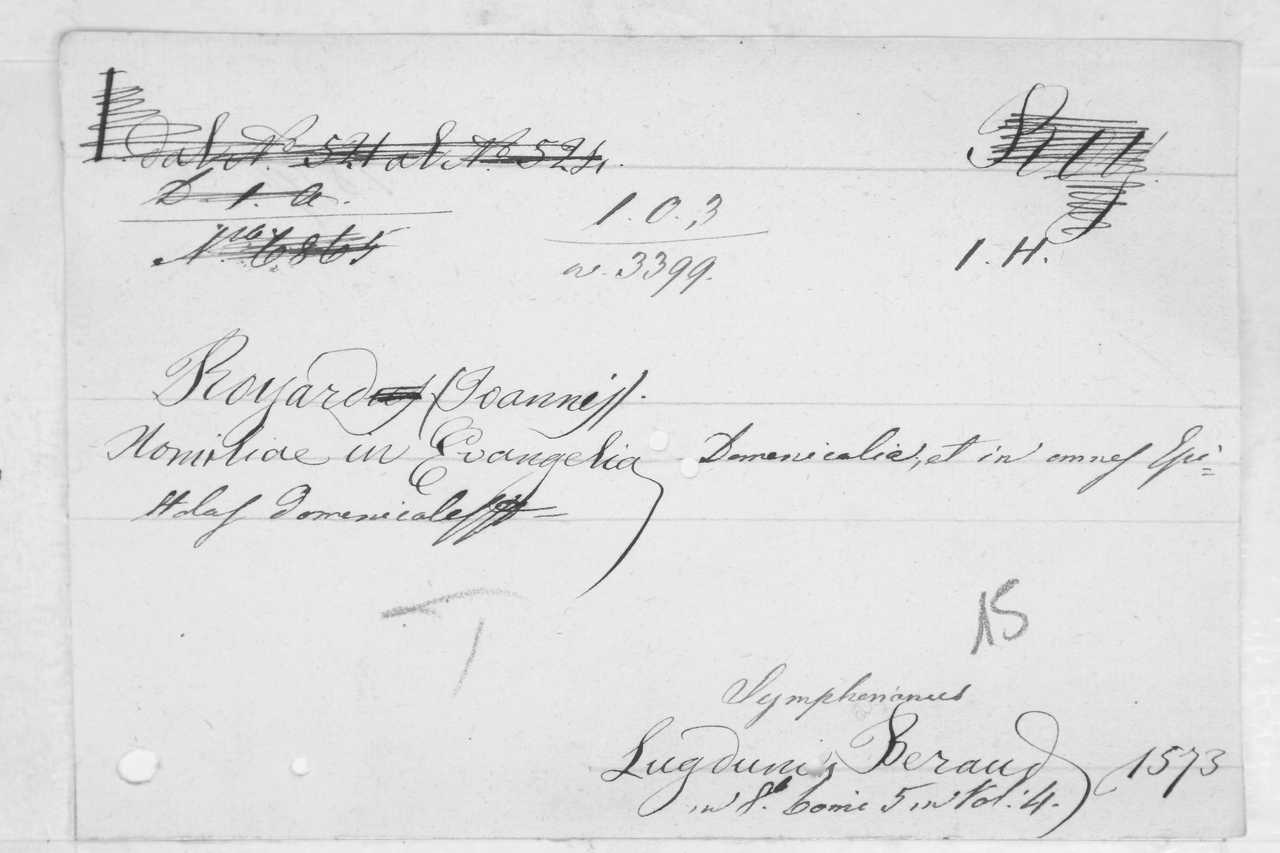 Dal No 521 al No 524.
D. 1. a.
No 6865
1. O. 3
n. 3399.
1. H.
Royard (Joannis).
Homiliae in Evangelia Domenicalia, et in omnes Epi=
stolas Domenicales
T
15
Symphorianus
Lugduni, Beraud, 1573
in 8.o tomi 5 in Vol: 4.